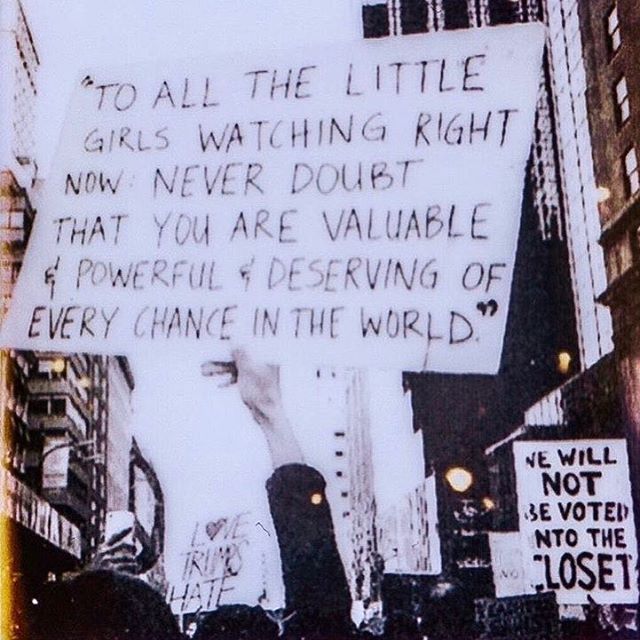 "TO ALL THE LITTLE
GIRLS WATCHING RIGHT
NOW: NEVER DOUBT
THAT YOU ARE VALUABLE
& POWERFUL & DESERVING OF
EVERY CHANCE IN THE WORLD."
LOVE
TRUMPS
HATE
WE WILL
NOT
BE VOTED
INTO THE
CLOSET
NO